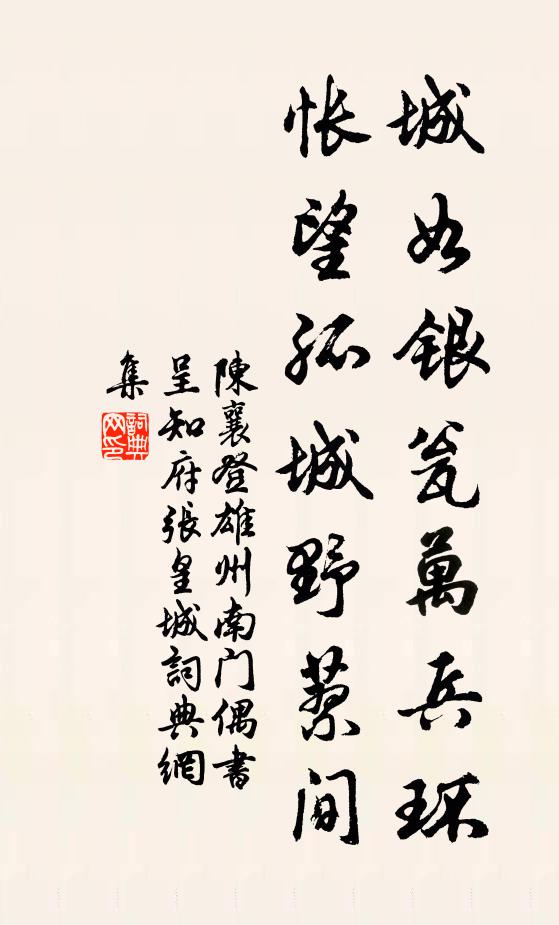 城如銀瓮萬兵环
怅望孤城野蔡间
陳襄登雄州南门偶書
呈知府張皇城詞典網
集
詞典
网印